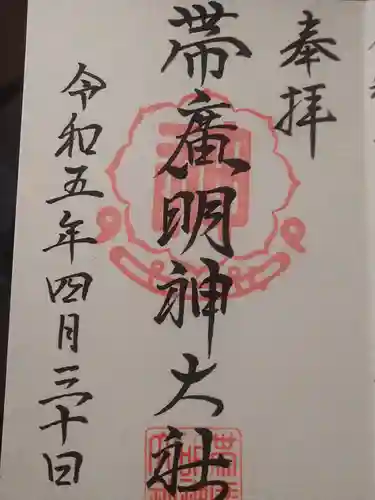 奉拝
帯廣明神大社
令和五年四月三十日